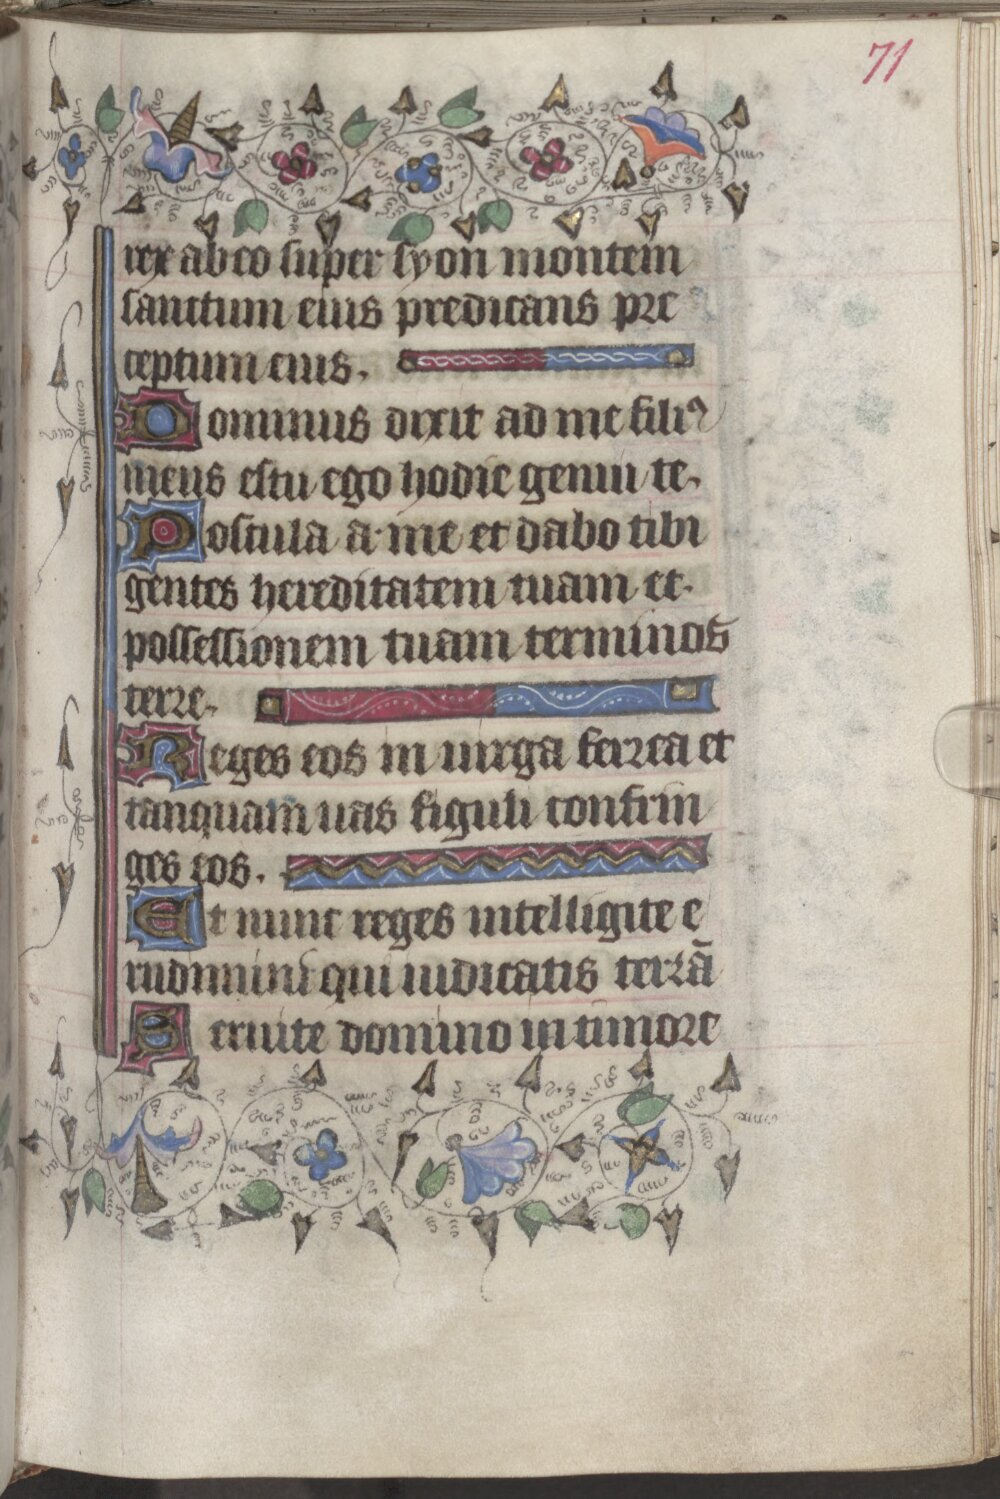 71
rex ab eo super syon montem
sanctum eius predicans pre
ceptum eius.
Dominus dixit ad me filiꝰ
meus es tu ego hodie genui te.
Postula a me et dabo tibi
gentes hereditatem tuam et
possessionem tuam terminos
terre.
Reges eos in uirga ferrea et
tanquam uas figuli confrin
ges eos.
Et nunc reges intelligite e
rudimini qui iudicatis terrã
Seruite domino in timore